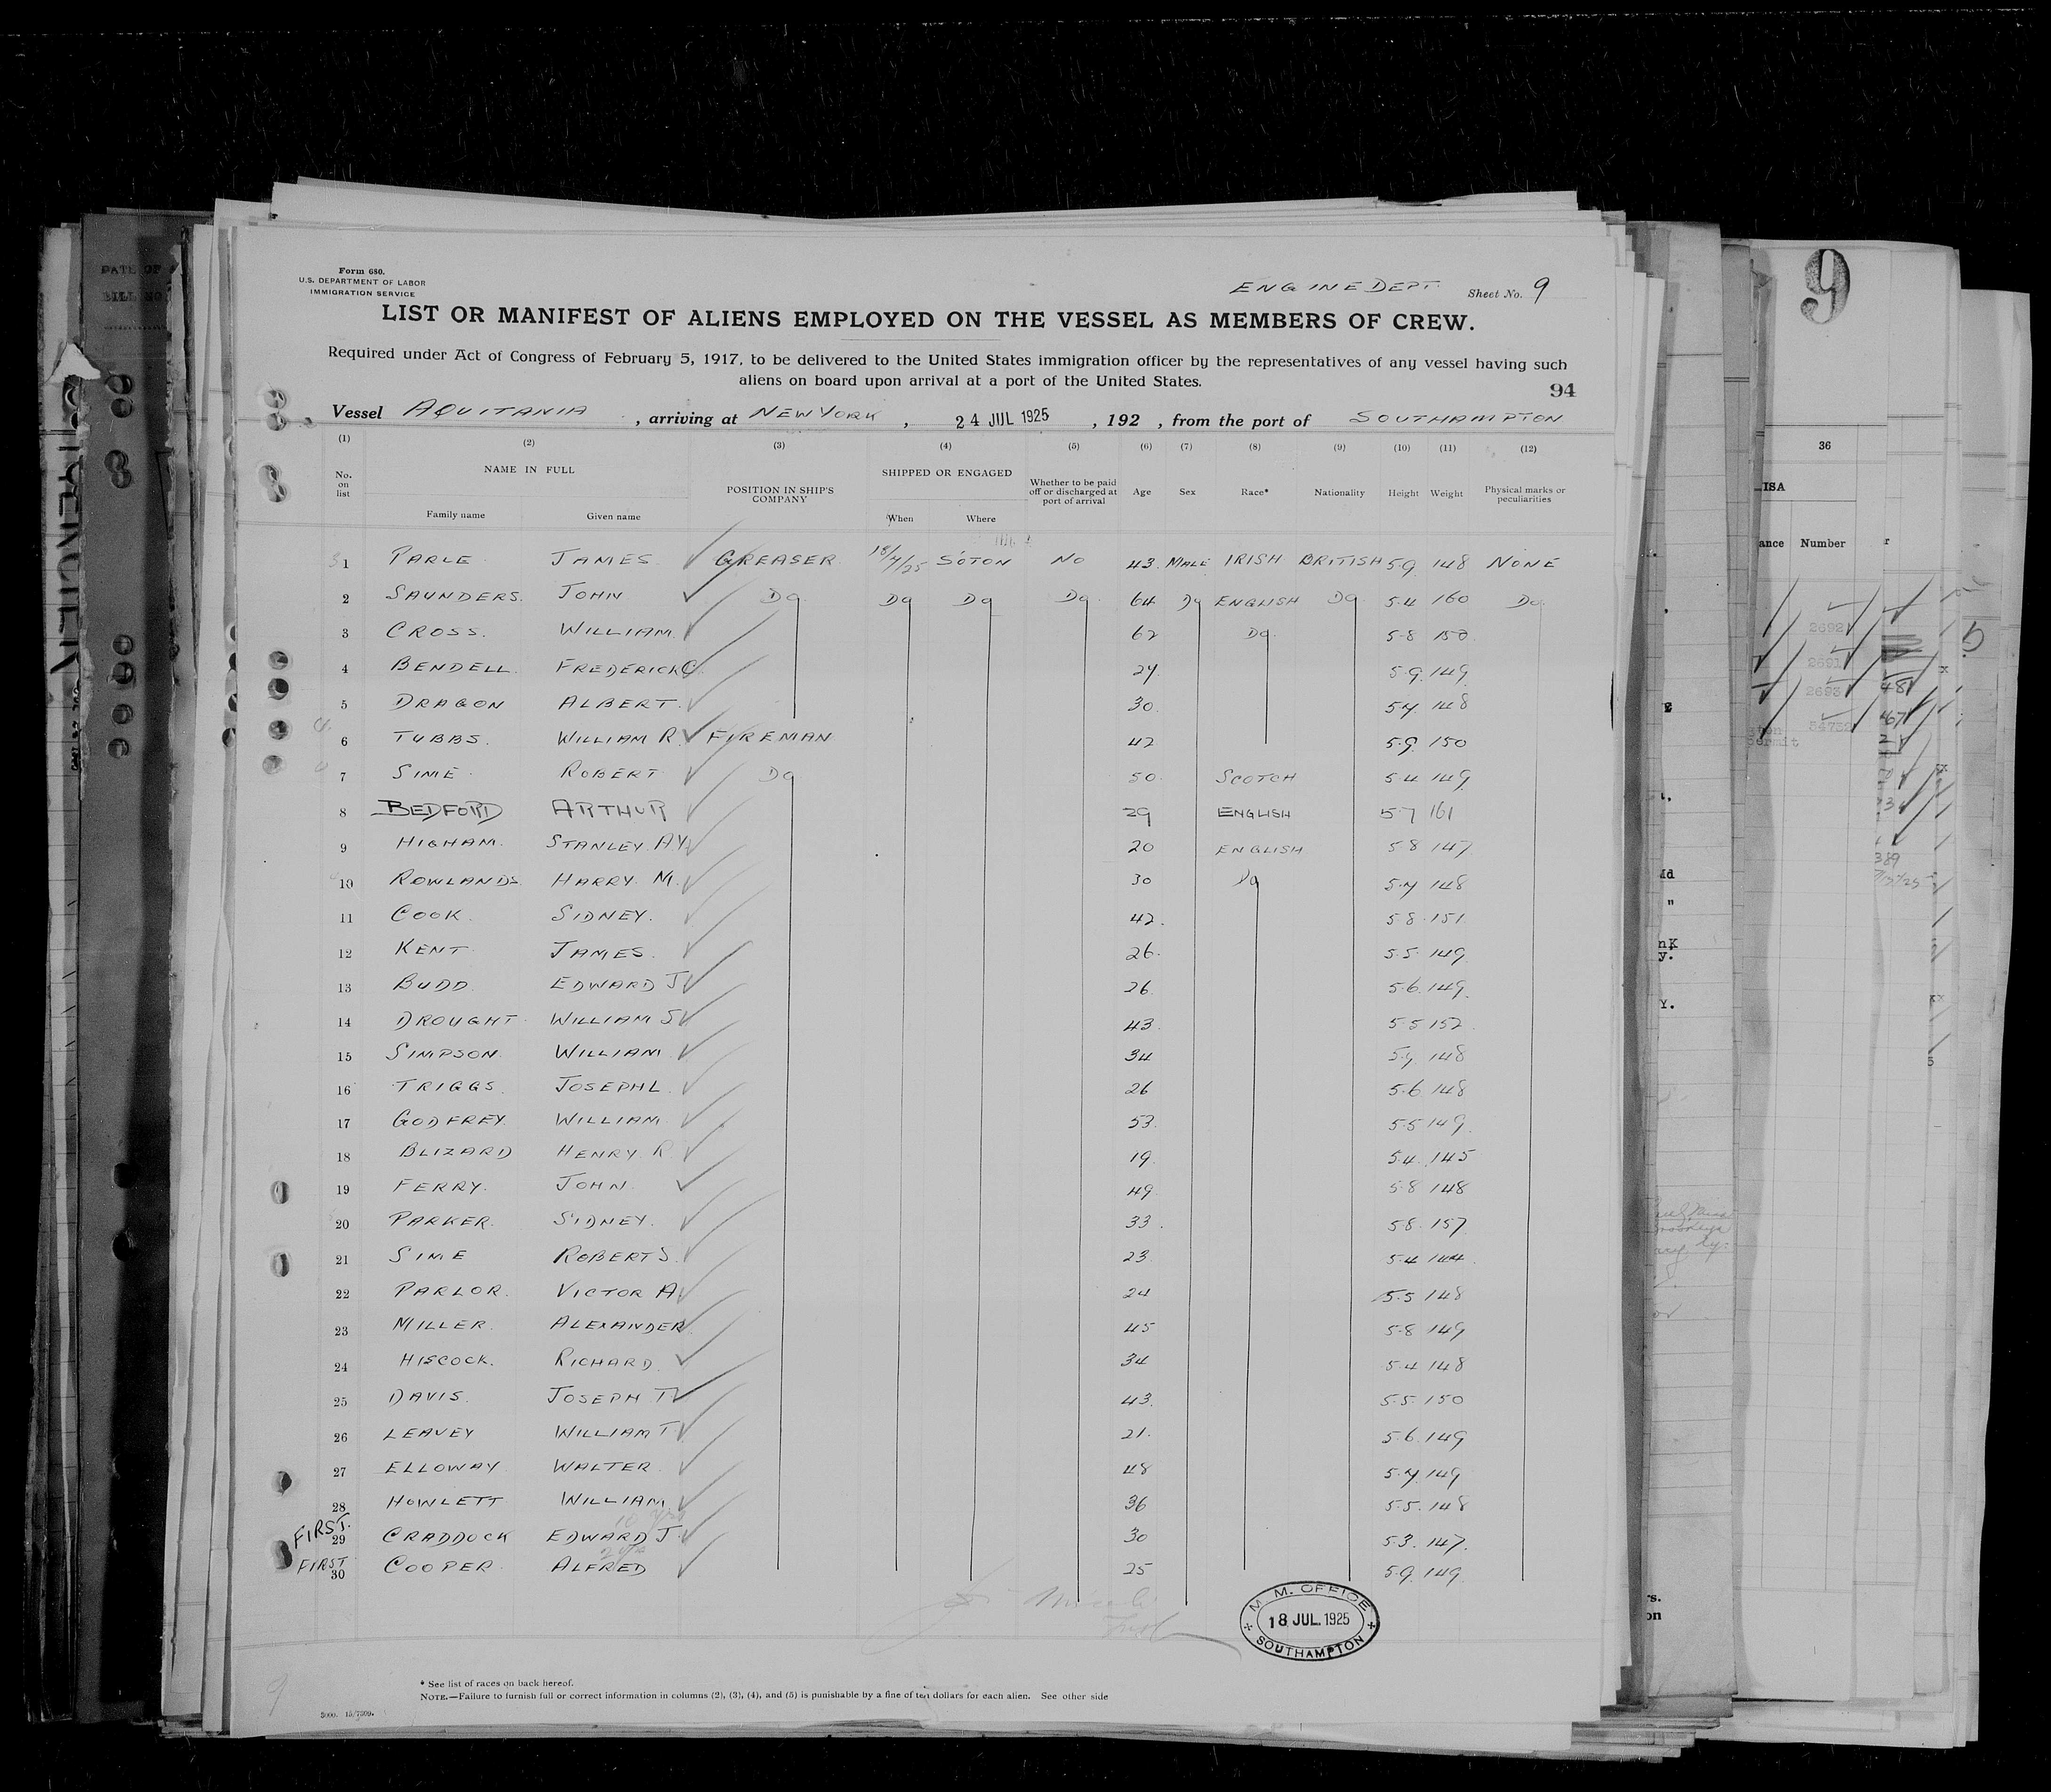 Form 680.
U.S. DEPARTMENT OF LABOR
IMMIGRATION SERVICE
ENGINE DEPT. Sheet No. 9
LIST OR MANIFEST OF ALIENS EMPLOYED ON THE VESSEL AS MEMBERS OF CREW.
Required under Act of Congress of February 5, 1917, to be delivered to the United States immigration officer by the representatives of any vessel having such
aliens on board upon arrival at a port of the United States.
94
Vessel AQUITANIA, arriving at NEW YORK, 24 JUL 1925, 192 , from the port of SOUTHAMPTON
(1) (2) (3) (4) (5) (6) (7) (8) (9) (10) (11) (12)
No. on list NAME IN FULL Family name Given name POSITION IN SHIP'S COMPANY SHIPPED OR ENGAGED When Where Whether to be paid off or discharged at port of arrival Age Sex Race* Nationality Height Weight Physical marks or peculiarities
1 PARLE JAMES GREASER 18/7/25 S'OTON NO 43 MALE IRISH BRITISH 5.9 148 NONE
2 SAUNDERS JOHN Do Do Do Do 64 Do ENGLISH Do 5.4 160 Do
3 CROSS WILLIAM 62 Do 5.8 150
4 BENDELL FREDERICK C 24 5.9 149
5 DRAGON ALBERT 30 5.7 148
6 TUBBS WILLIAM R FIREMAN 42 5.9 150
7 SIME ROBERT Do 50 SCOTCH 5.4 149
8 BEDFORD ARTHUR 29 ENGLISH 5.7 161
9 HIGHAM STANLEY A.Y. 20 ENGLISH 5.8 147
10 ROWLANDS HARRY M. 30 Do 5.7 148
11 COOK SIDNEY 42 5.8 151
12 KENT JAMES 26 5.5 149
13 BUDD EDWARD J 26 5.6 149
14 DROUGHT WILLIAM S 43 5.5 152
15 SIMPSON WILLIAM 34 5.7 148
16 TRIGGS JOSEPH L 26 5.6 148
17 GODFREY WILLIAM 53 5.5 149
18 BLIZARD HENRY R 19 5.4 145
19 FERRY JOHN 49 5.8 148
20 PARKER SIDNEY 33 5.8 157
21 SIME ROBERT S 23 5.4 144
22 PARLOR VICTOR A 24 5.5 148
23 MILLER ALEXANDER 45 5.8 149
24 HISCOCK RICHARD 34 5.4 148
25 DAVIS JOSEPH T 43 5.5 150
26 LEAVEY WILLIAM T 21 5.6 149
27 ELLOWAY WALTER 48 5.7 149
28 HOWLETT WILLIAM 36 5.5 148
FIRST 29 CRADDOCK EDWARD J 30 5.3 147
FIRST 30 COOPER ALFRED 25 5.9 149
M. M. OFFICE
18 JUL. 1925
SOUTHAMPTON
* See list of races on back hereof.
NOTE.—Failure to furnish full or correct information in columns (2), (3), (4), and (5) is punishable by a fine of ten dollars for each alien. See other side
9
9
36
Number
2692
2691
2693